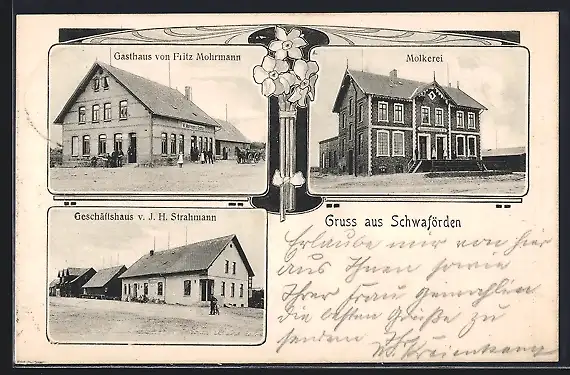 Gasthaus von Fritz Mohrmann
Molkerei
Geschäftshaus v. J. H. Strahmann
Gruss aus Schwaförden
Erlaube mir von hier
aus Ihnen sowie
Ihrer Frau Gemahlin
die besten Grüße zu
senden